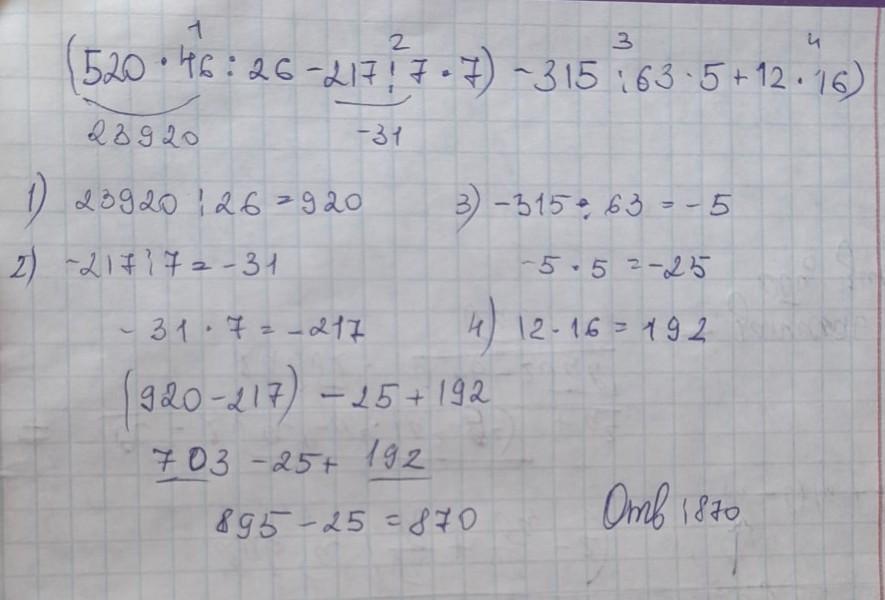 1 2 3 4
(520 · 46 : 26 - 217 : 7 · 7) - 315 : 63 · 5 + 12 · 16)
23920 -31
1) 23920 : 26 = 920
2) -217 : 7 = -31
- 31 · 7 = -217
3) -315 : 63 = - 5
-5 · 5 = -25
4) 12 · 16 = 192
(920 - 217) - 25 + 192
703 - 25 + 192
895 - 25 = 870
Отв : 870